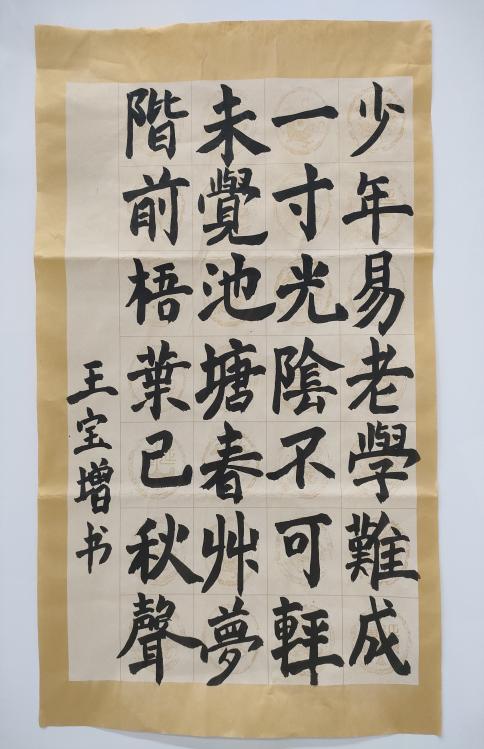 少年易老學難成
一寸光陰不可輕
未覺池塘春艸夢
階前梧葉已秋聲
王宝增书